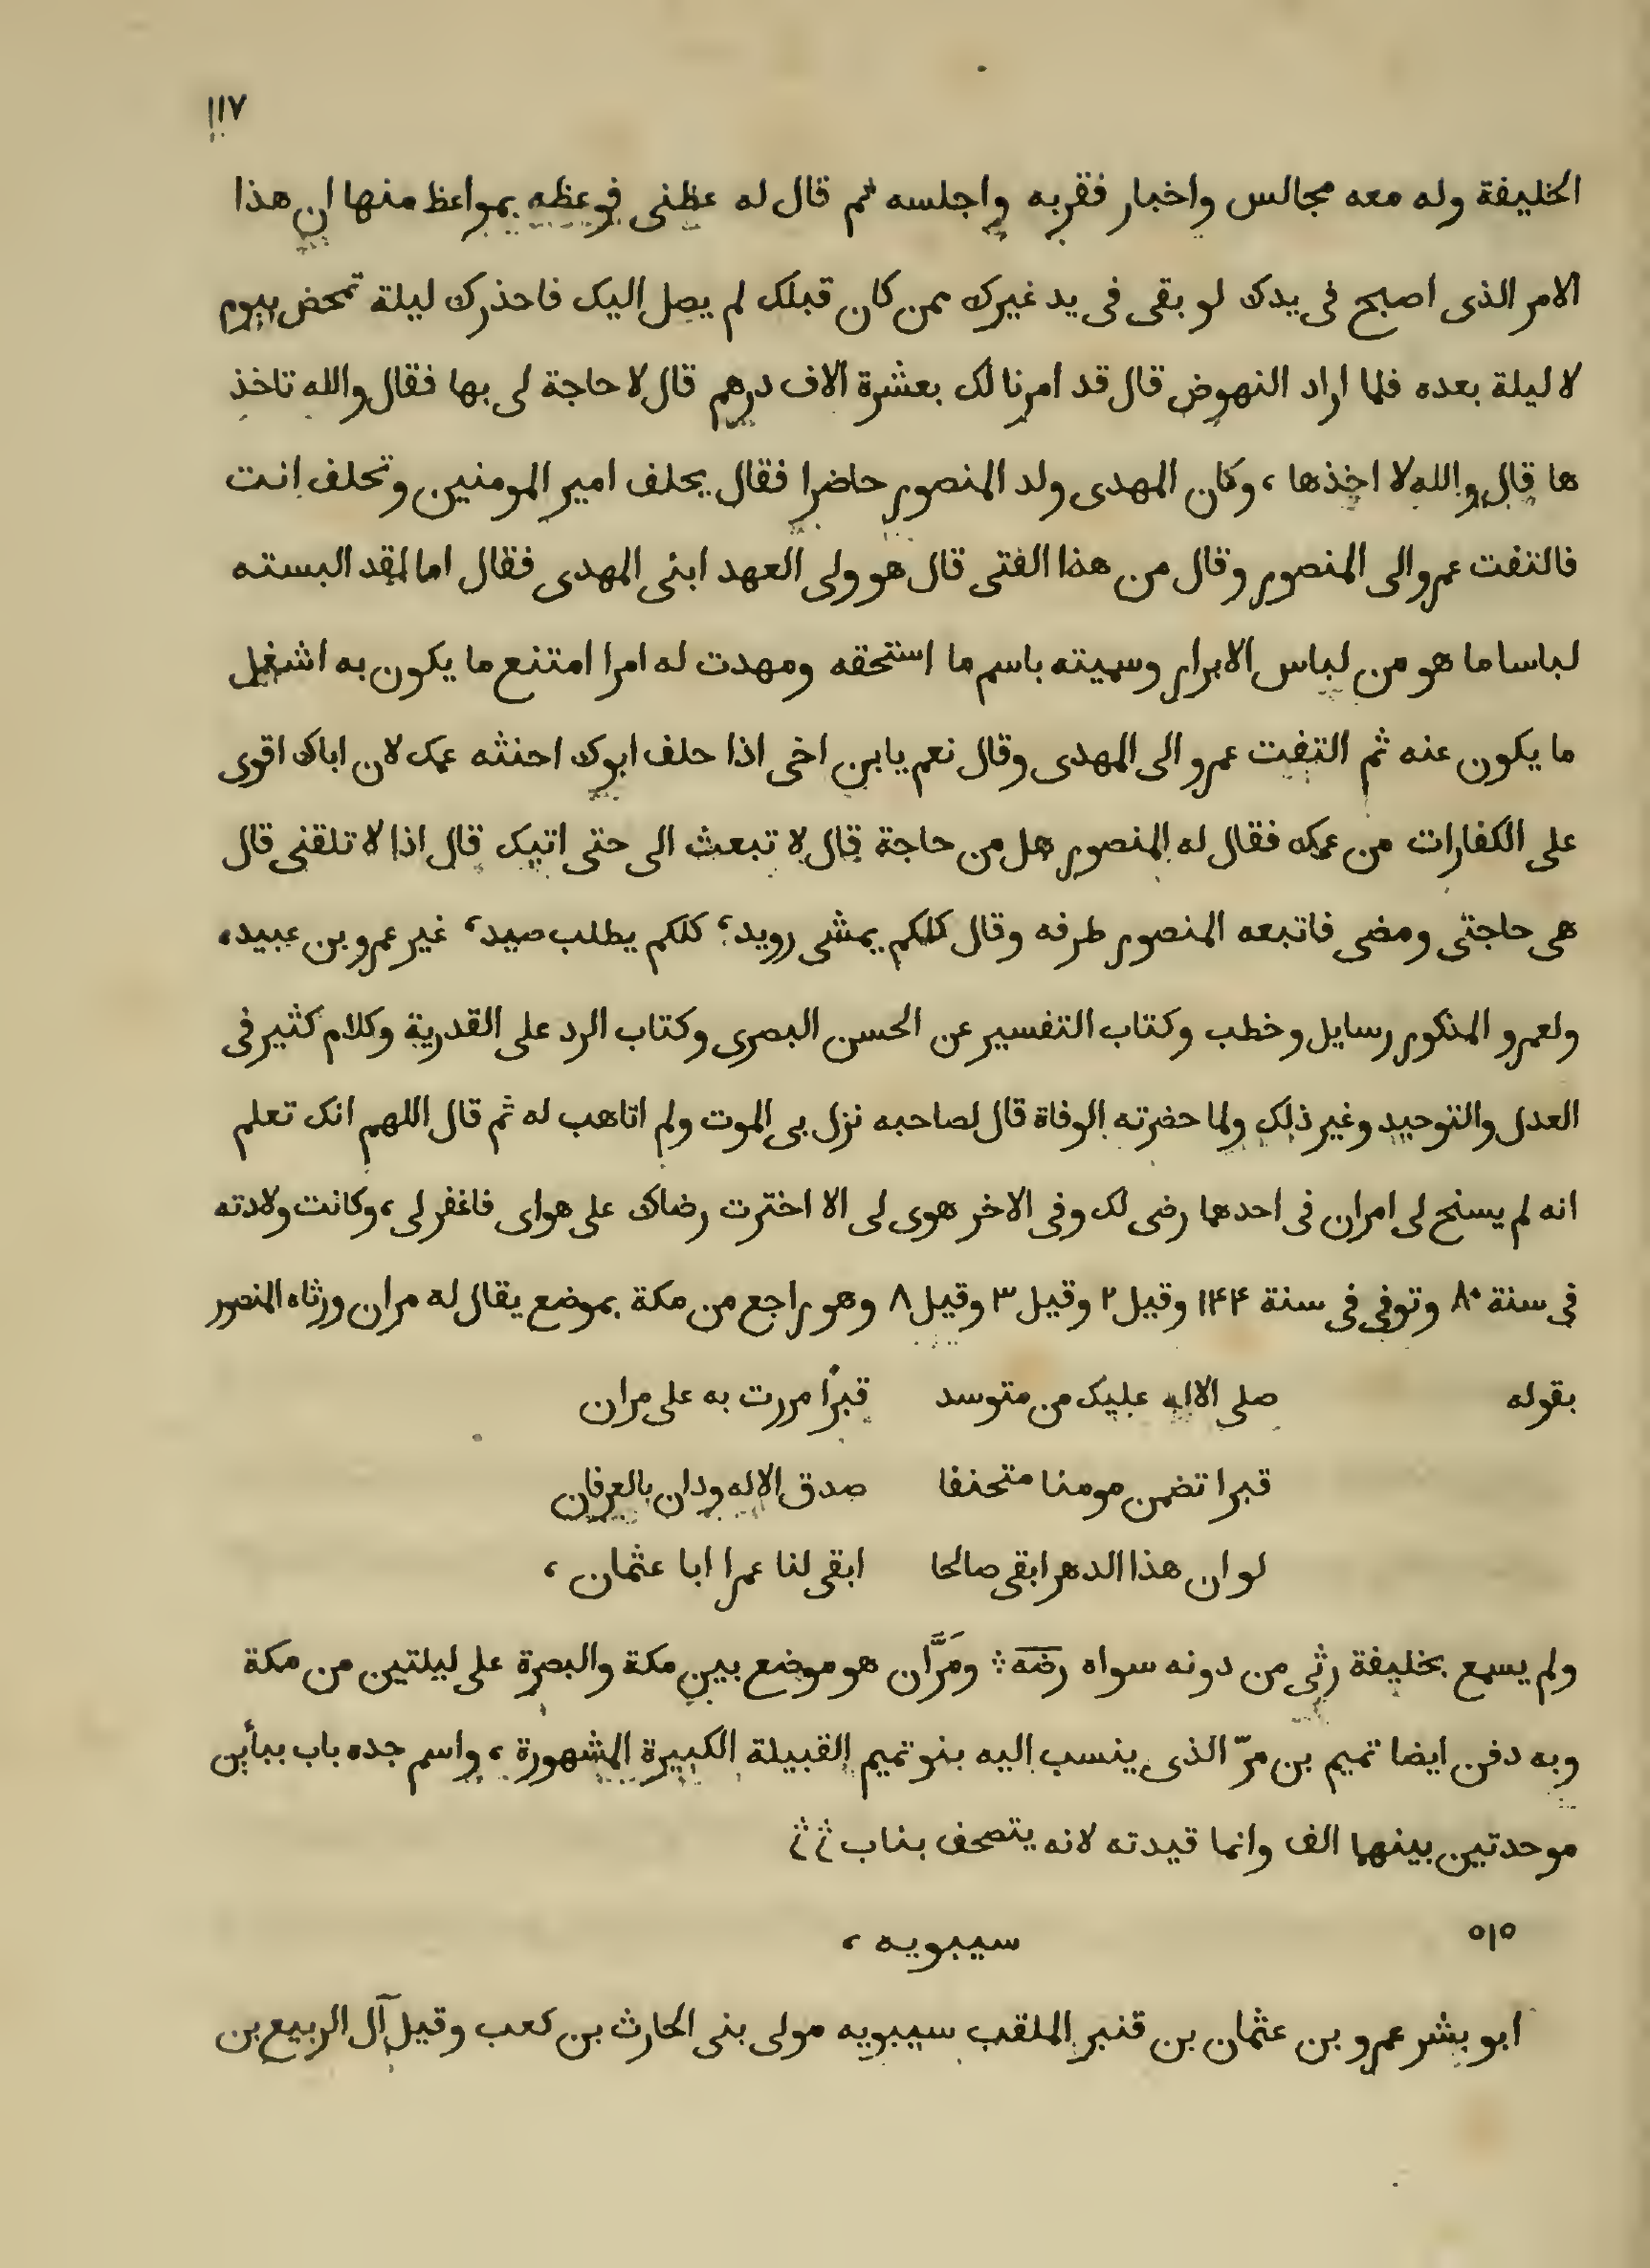 ١١٧
الخليفة وله معه مجالس واخبار فقربه واجلسه ثم قال له عظنى فوعظه بمواعظ منها ان هذا
الامر الذى اصبح فى يدك لو بقى فى يد غيرك ممن كان قبلك لم يصل اليك فاحذرك ليلة تمخض بيوم
لا ليلة بعده فلما اراد النهوض قال قد امرنا لك بعشرة الاف درهم قال لا حاجة لى بها فقال والله تاخذ
ها قال والله لا اخذها ، وكان المهدى ولد المنصور حاضرا فقال يحلف امير المومنين وتحلف انت
فالتفت عمرو الى المنصور وقال من هذا الفتى قال هو ولى العهد ابنى المهدى فقال اما لقد البسته
لباسا ما هو من لباس الابرار وسميته باسم ما استحقه ومهدت له امرا امتنع ما يكون به اشغل
ما يكون عنه ثم التفت عمرو الى المهدى وقال نعم يابن اخى اذا حلف ابوك احنثه عمك لان اباك اقوى
على الكفارات من عمك فقال له المنصور هل من حاجة قال لا تبعث الى حتى اتيك قال اذا لا تلقنى قال
هى حاجتى ومضى فاتبعه المنصور طرفه وقال كلكم يمشى رويد ، كلكم يطلب صيد ، غير عمرو بن عبيد ،
ولعمرو المذكور رسايل وخطب وكتاب التفسير عن الحسن البصرى وكتاب الرد على القدرية وكلام كثير فى
العدل والتوحيد وغير ذلك ولما حضرته الوفاة قال لصاحبه نزل بى الموت ولم اتاهب له ثم قال اللهم انك تعلم
انه لم يسنح لى امران فى احدهما رضى لك وفى الاخر هوى لى الا اخترت رضاك على هواى فاغفر لى ، وكانت ولادته
فى سنة ٨٠ وتوفى فى سنة ١٤٤ وقيل ٢ وقيل ٣ وقيل ٨ وهو راجع من مكة بموضع يقال له مران ورثاه المنصور
بقوله صلى الاله عليك من متوسد قبرًا مررت به على مران
قبرا تضمن مومنا متحنفا صدق الاله ودان بالعرفان
لو ان هذا الدهر ابقى صالحا ابقى لنا عمرا ابا عثمان ،
ولم يسمع بخليفة رثى من دونه سواه رضه ؛ ومَرَّان هو موضع بين مكة والبصرة على ليلتين من مكة
وبه دفن ايضا تميم بن مرّ الذى ينسب اليه بنو تميم القبيلة الكبيرة المشهورة ، واسم جده باب ببأين
موحدتين بينهما الف وانما قيدته لانه يتصحف بناب
٥١٥ سيبويه ،
ابو بشر عمرو بن عثمان بن قنبر الملقب سيبويه مولى بنى الحارث بن كعب وقيل آل الربيع بن